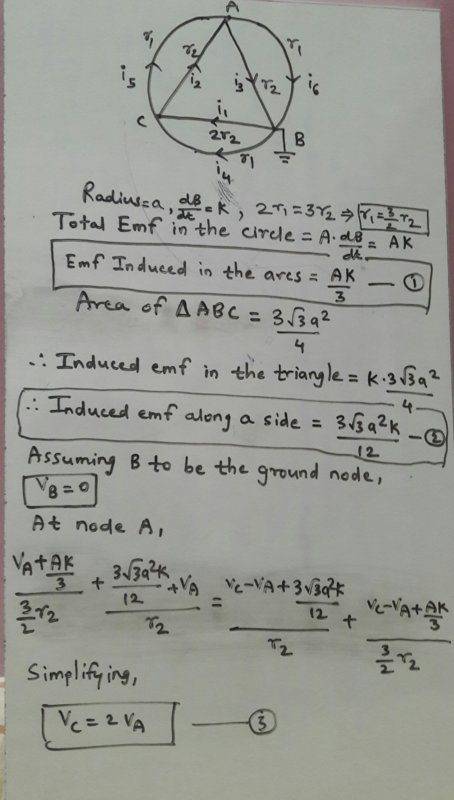 A
r₁ r₂ r₁
i₅ i₂ i₃ r₂ i₆
C i₁ B
2r₂
r₁
i₄
Radius=a, dB/dt=K, 2r₁=3r₂ ⇒ r₁=3/2 r₂
Total Emf in the circle = A.dB/dt = AK
Emf Induced in the arcs = AK/3 — ①
Area of ΔABC = 3√3a²/4
∴ Induced emf in the triangle = K.3√3a²/4
∴ Induced emf along a side = 3√3a²K/12 — ②
Assuming B to be the ground node,
V_B = 0
At node A,
(V_A+AK/3)/(3/2 r₂) + (3√3a²K/12 + V_A)/r₂ = (V_C-V_A+3√3a²K/12)/r₂ + (V_C-V_A+AK/3)/(3/2 r₂)
Simplifying,
V_C = 2V_A — ③